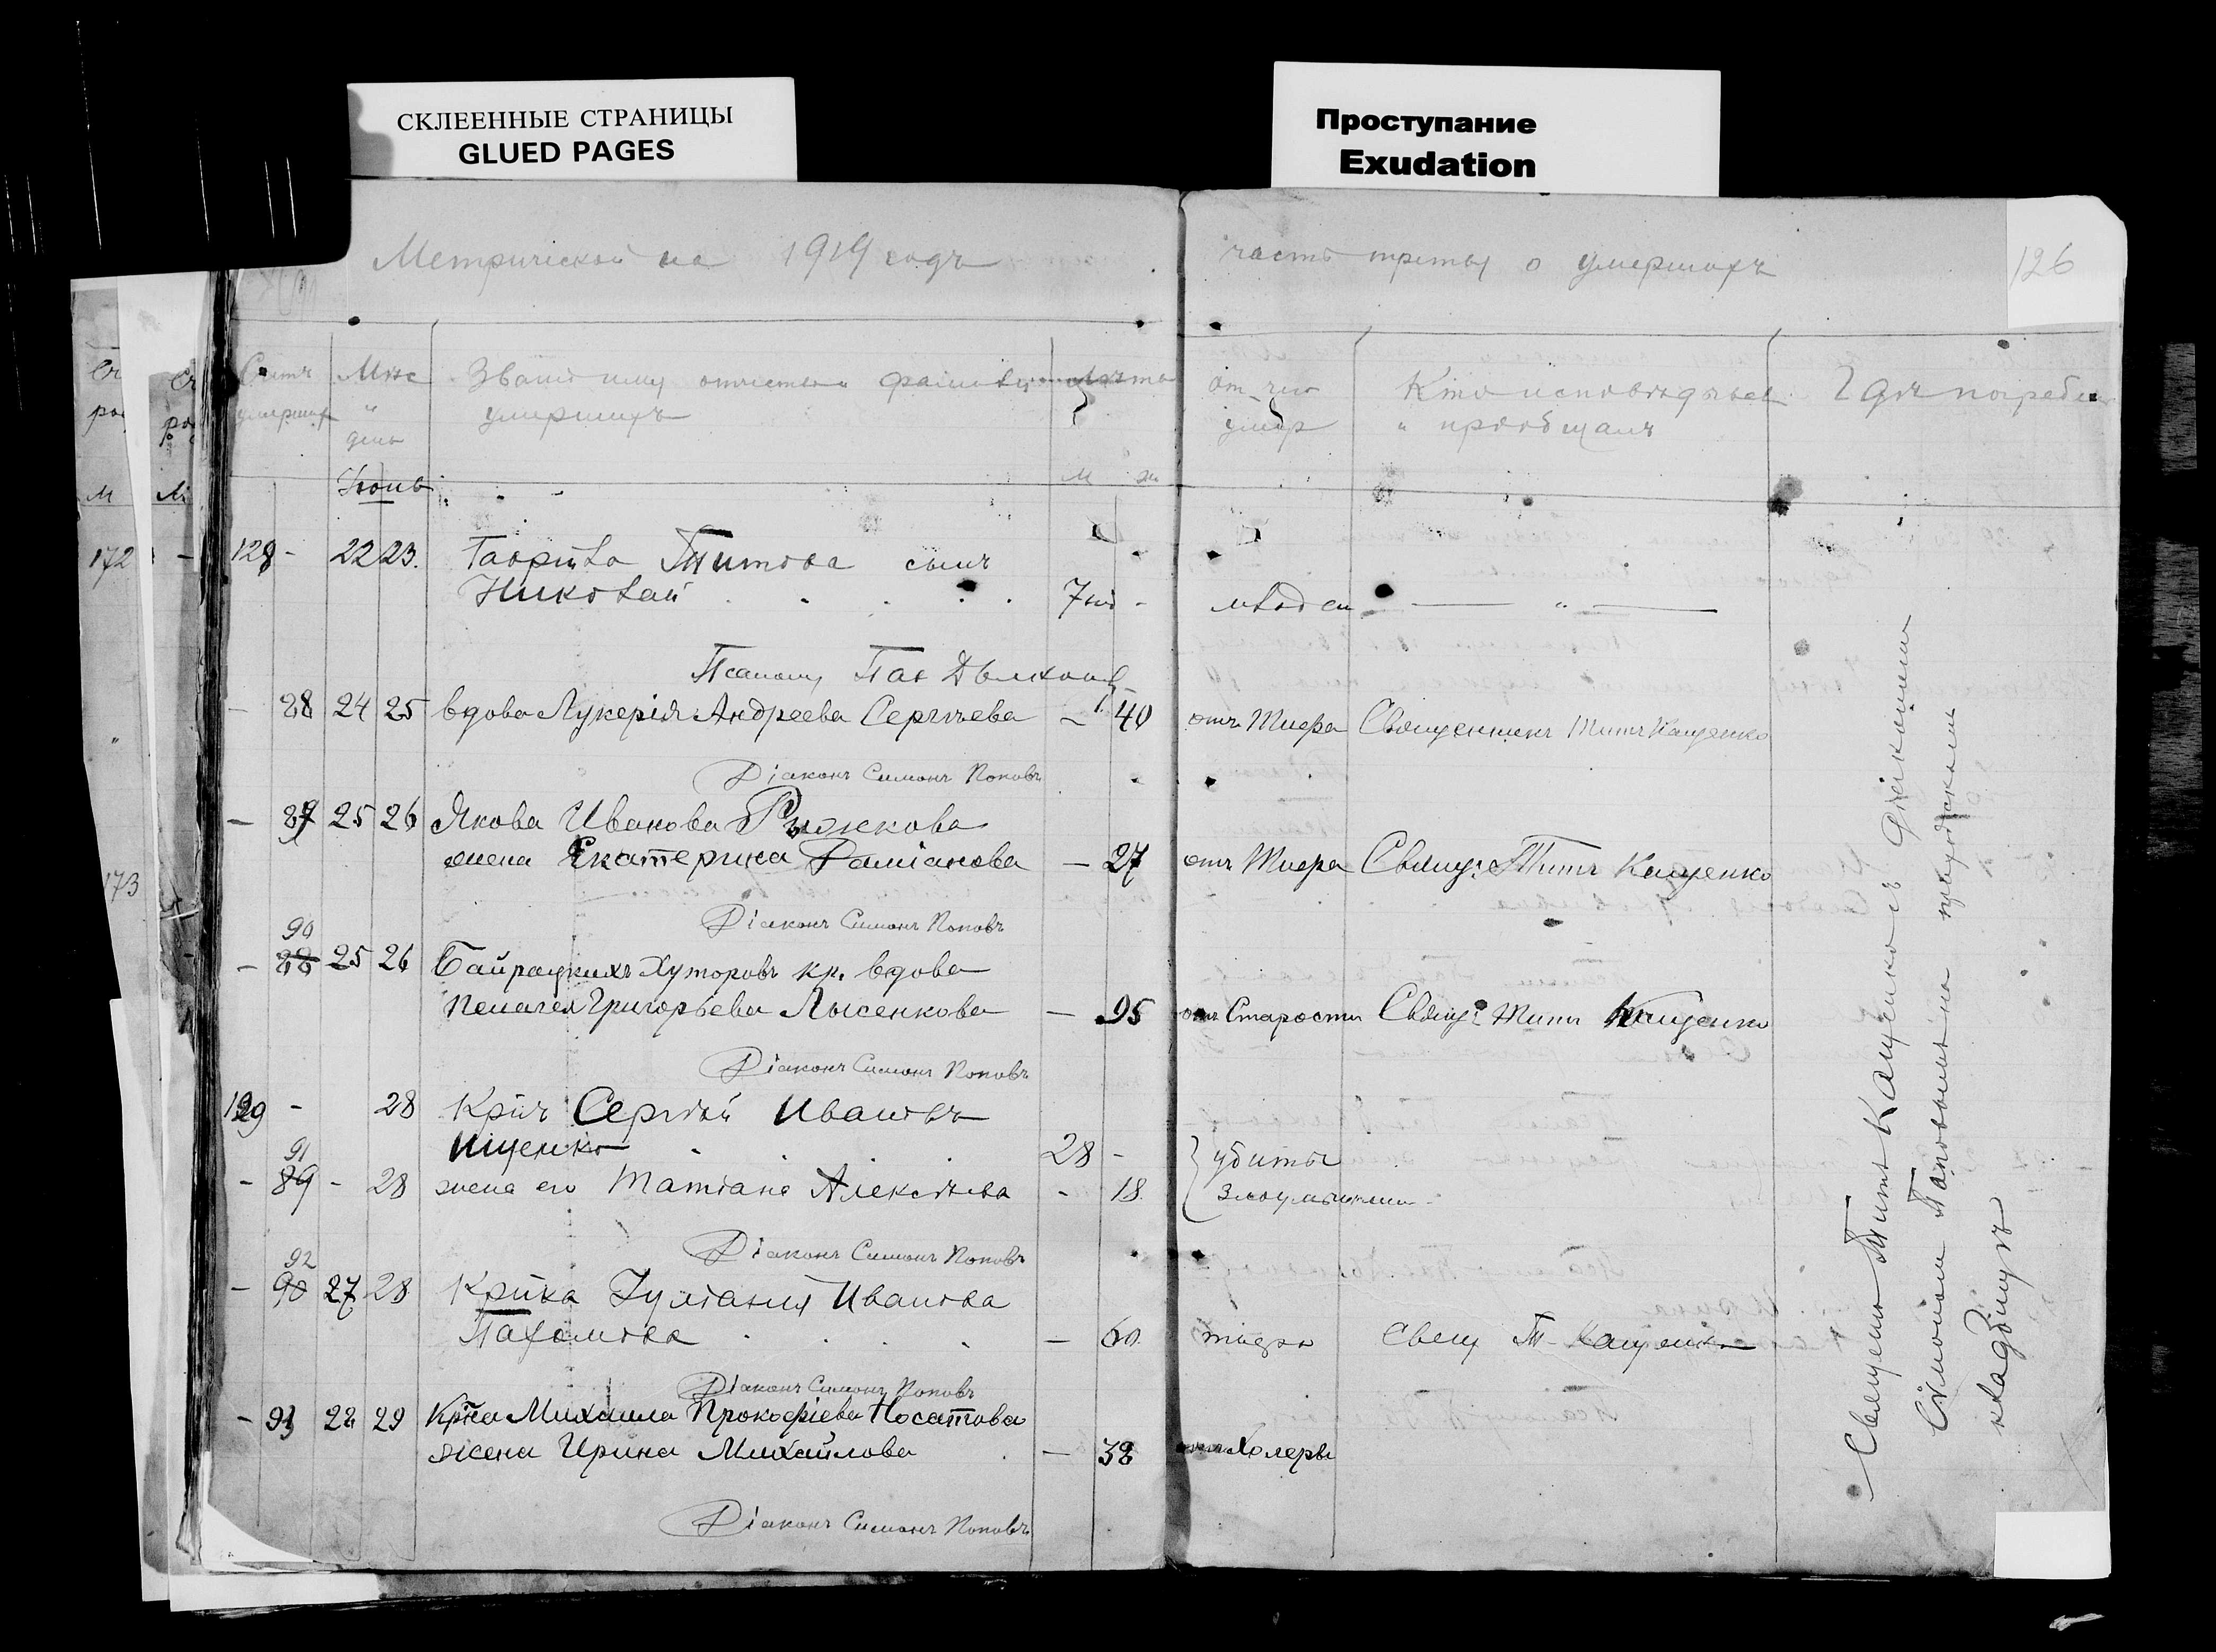 СКЛЕЕННЫЕ СТРАНИЦЫ
GLUED PAGES
Проступание
Exudation
Метрической на 1919 годъ
часть третья о умершихъ
126
Счетъ умершихъ
Мнс " день
Званіе имя отчество и фамилія умершихъ
Лѣта
от чего умер
Кто исповѣдывал " пріобщалъ
Гдѣ погребен
Іюнь
м ж
172
173
128 - 22 23. Гавріила Титова сынъ
Николай 7 - младен — " —
Псаломщ Пав
- 88 24 25 вдова Лукерія Андреева Сергѣева - 40 отъ Тифа Священникъ Титъ Кащенко
Діаконъ Симонъ Поповъ
- 89 25 26 Якова Иванова Рыжкова
жена Екатерина Даміанова - 27 отъ Тифа Свящ: Титъ Кащенко
Діаконъ Симонъ Поповъ
90
- 88 25 26 Байрацкихъ Хуторовъ кр. вдова
Пелагея Григорьева Лысенкова - 95 отъ Старости Свящ: Титъ Кащенко
Діаконъ Симонъ Поповъ
129 - 28 Крнъ Сергѣй Ивановъ
Ищенко 28 - убиты
91
- 89 - 28 жена его Татіана Алексѣева - 18.
Діаконъ Симонъ Поповъ
92
- 90 27 28 Крнка Іуліанія Иванова
Пахомова - 60. тифа Свящ Т. Кащенко
Діаконъ Симонъ Поповъ
- 93 28 29 Крна Михаила Прокофіева Носатова
жена Ирина Михайлова - 38 отъ Холеры
Діаконъ Симонъ Поповъ
Священно Титъ Кащенко съ Діакономъ
Симономъ Поповымъ на приходскомъ
кладбищѣ